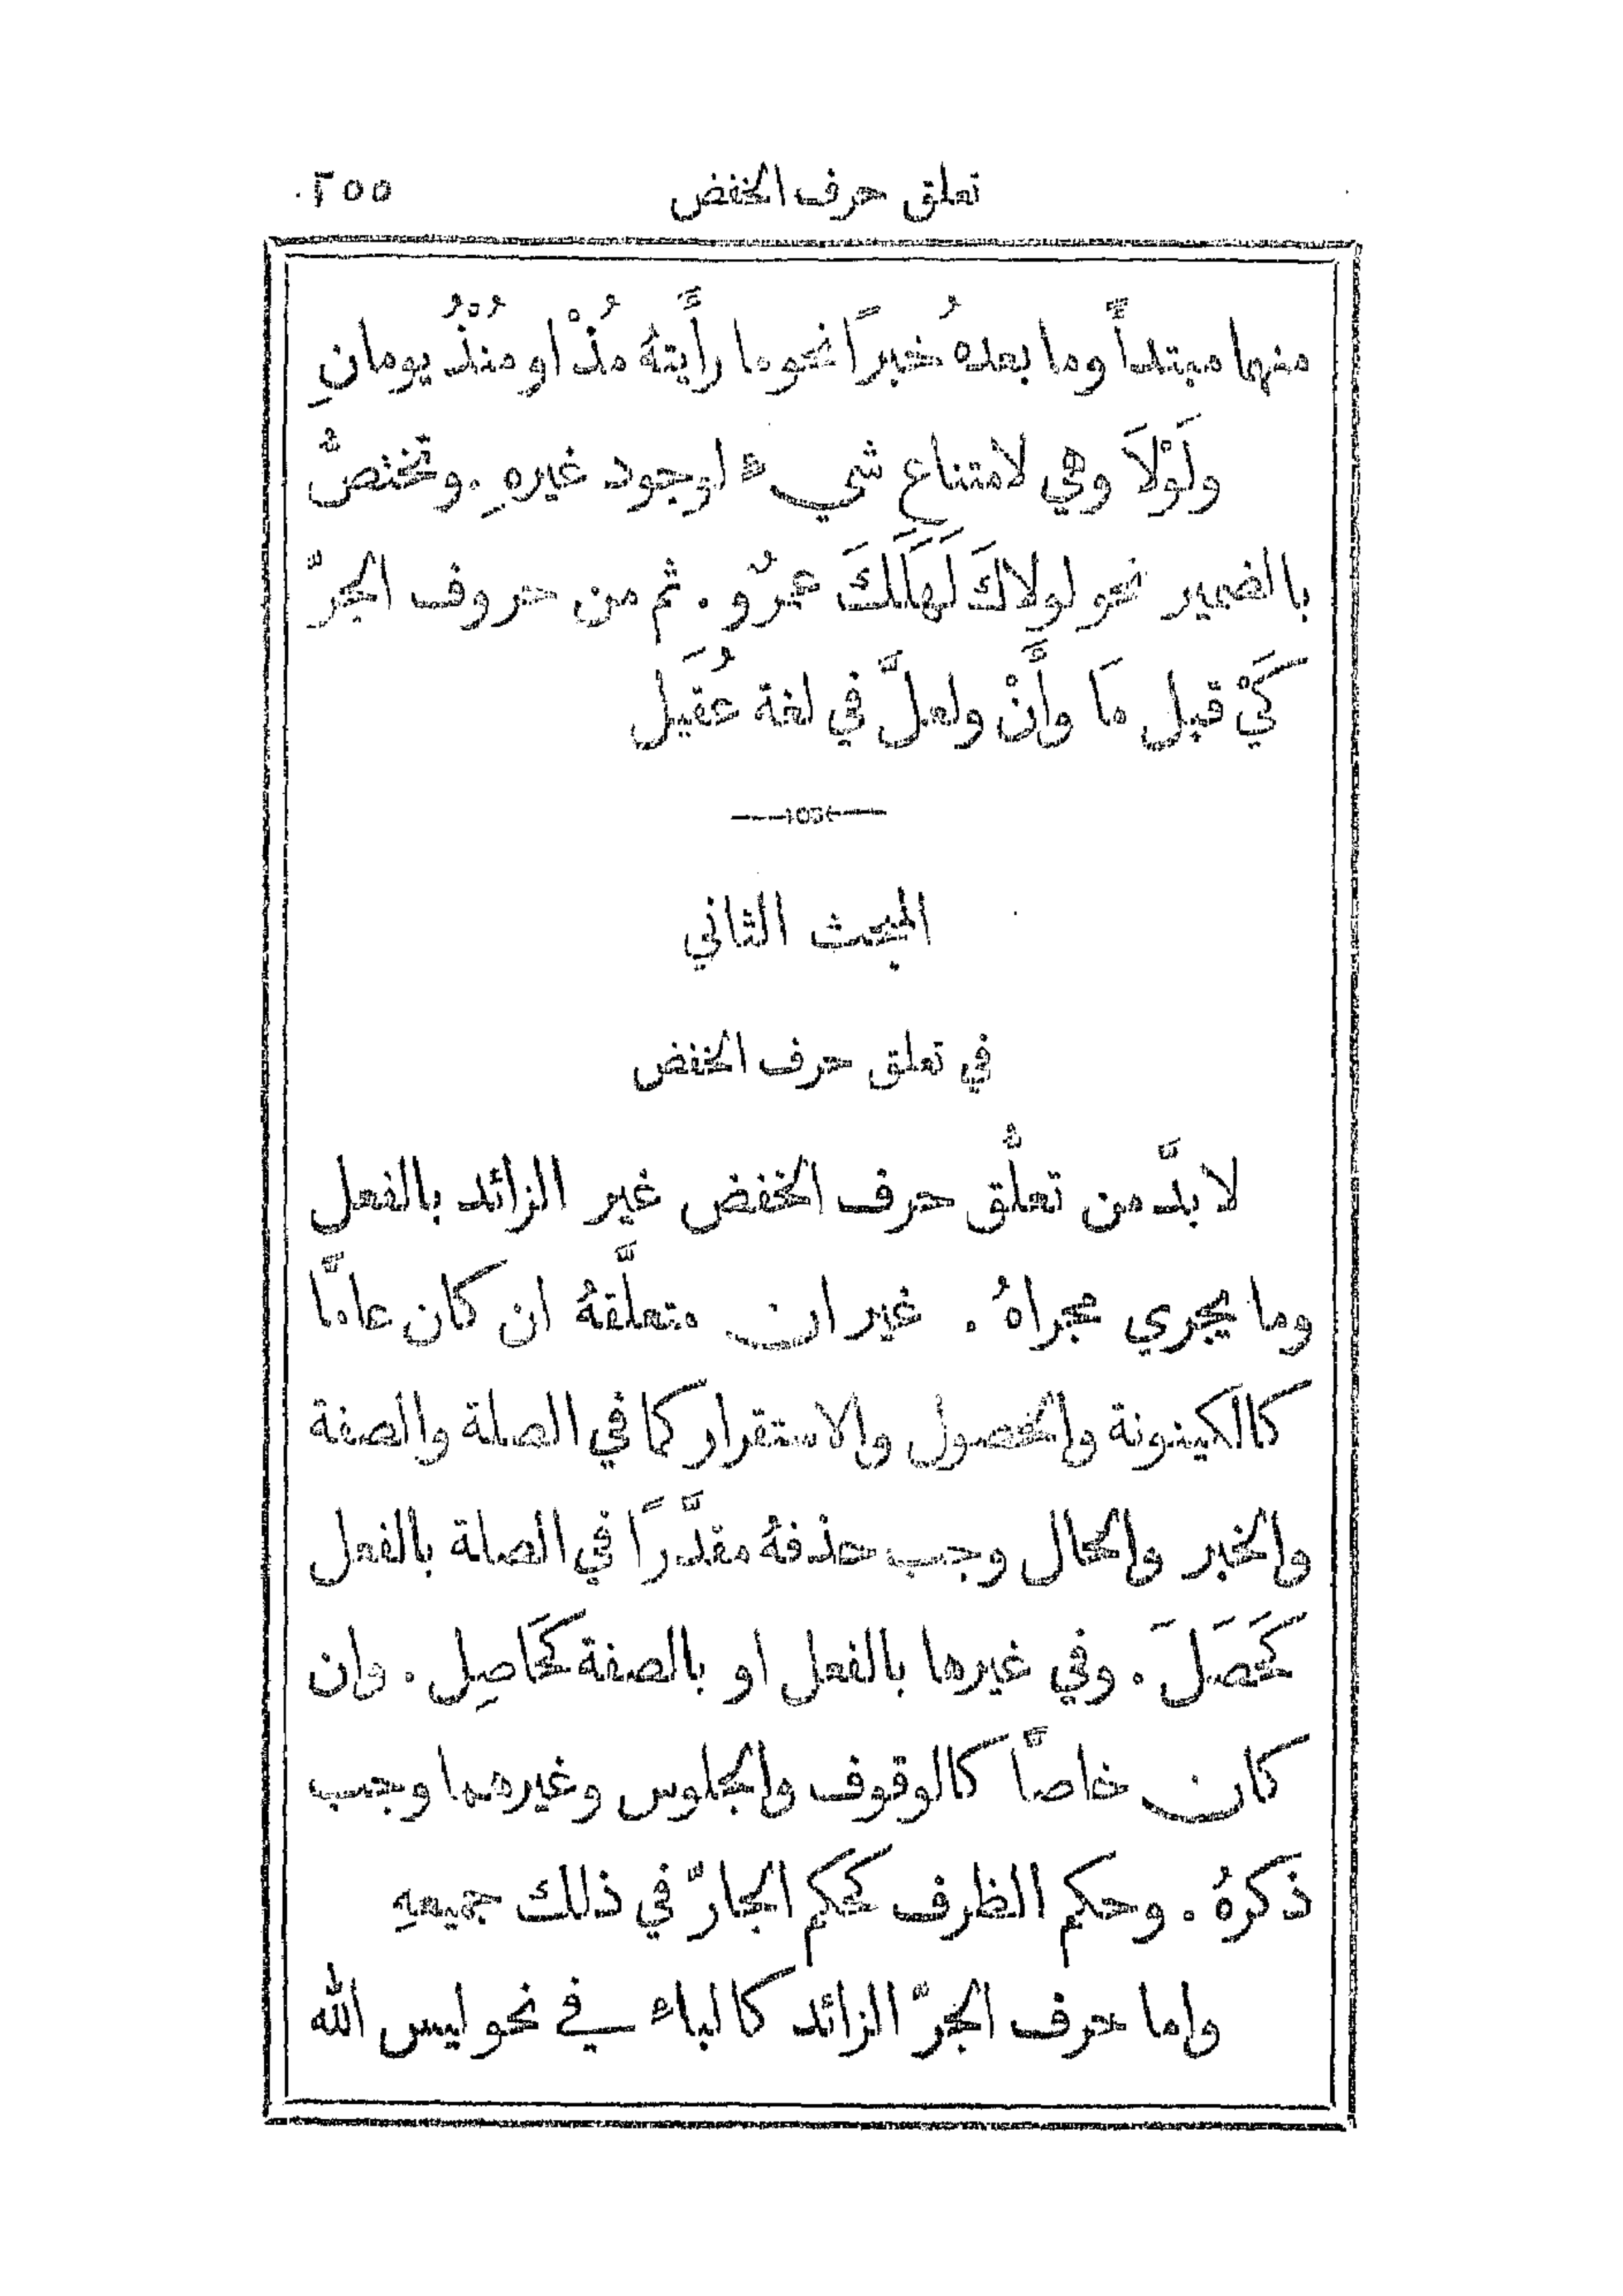 تعلق حرف الخفض ٢٥٥
منهما مبتدأً وما بعدهُ خبرًا نحو ما رأَيتهُ مُذْ او مُنْذُ يومانِ
ولَوْلَا وهي لامتناع شيءٍ لوجود غيرهِ. وتختصُّ
بالضمير نحو لولاكَ لَهَلَكَ عمرٌو. ثم من حروف الجرّ
كَيْ قبل مَا وأَنْ ولعلَّ في لغة عُقَيل
المبحث الثاني
في تعلق حرف الخفض
لا بدَّ من تعلُّق حرف الخفض غير الزائد بالفعل
وما يجري مجراهُ. غير ان متعلَّقهُ ان كان عامًّا
كالكينونة والحصول والاستقرار كما في الصلة والصفة
والخبر والحال وجب حذفهُ مقدَّرًا في الصلة بالفعل
كَحَصَلَ. وفي غيرها بالفعل او بالصفة كَحَاصِل. وان
كان خاصًّا كالوقوف والجلوس وغيرهما وجب
ذكرهُ. وحكم الظرف كحكم الجارّ في ذلك جميعهِ
واما حرف الجرّ الزائد كالباء في نحو ليس الله